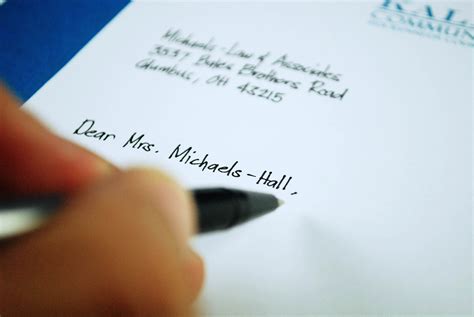 KALA
COMMUN
Michaels - Law & Associates
3537 Bales Brothers Road
Columbus, OH 43215
Dear Mrs. Michaels-Hall,